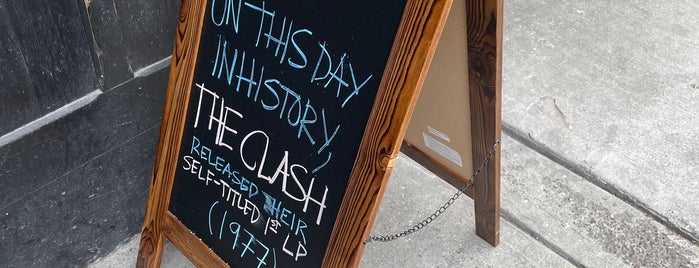 ON THIS DAY
IN HISTORY,
THE CLASH
RELEASED THEIR
SELF-TITLED 1ST LP
(1977)